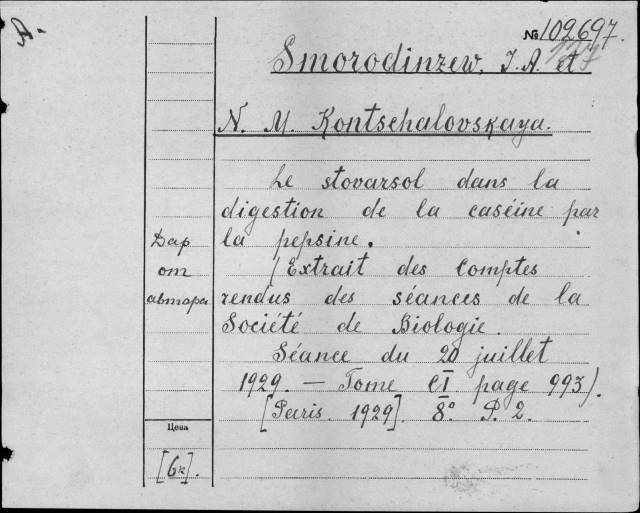 А.
№ 102697.
Smorodinzew, I. A. et
N. M. Kontschalovskaya.
Le stovarsol dans la
digestion de la caséine par
la pepsine.
(Extrait des Comptes
rendus des séances de la
Société de Biologie.
Séance du 20 juillet
1929. — Tome CI page 993).
[Paris. 1929]. 8°. P. 2.
Дар
от
автора
Цена
[6к].